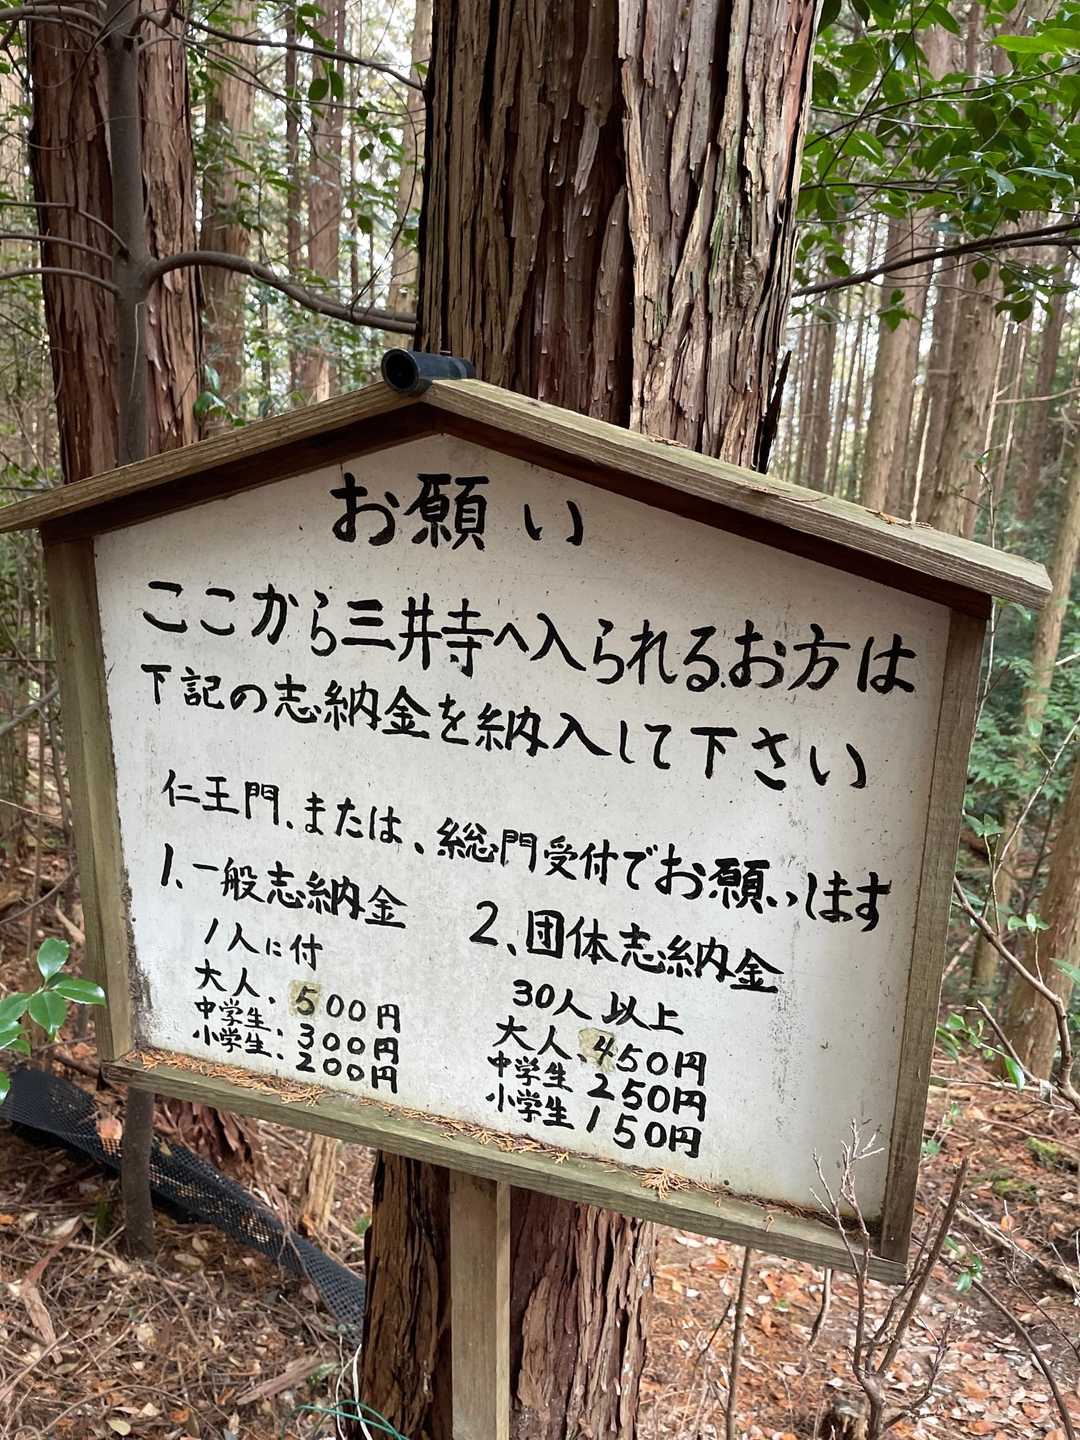 お願い
ここから三井寺へ入られるお方は
下記の志納金を納入して下さい
仁王門、または、総門受付でお願いします
1、一般志納金
1人に付
大人、500円
中学生、300円
小学生、200円
2、団体志納金
30人以上
大人、450円
中学生 250円
小学生 150円